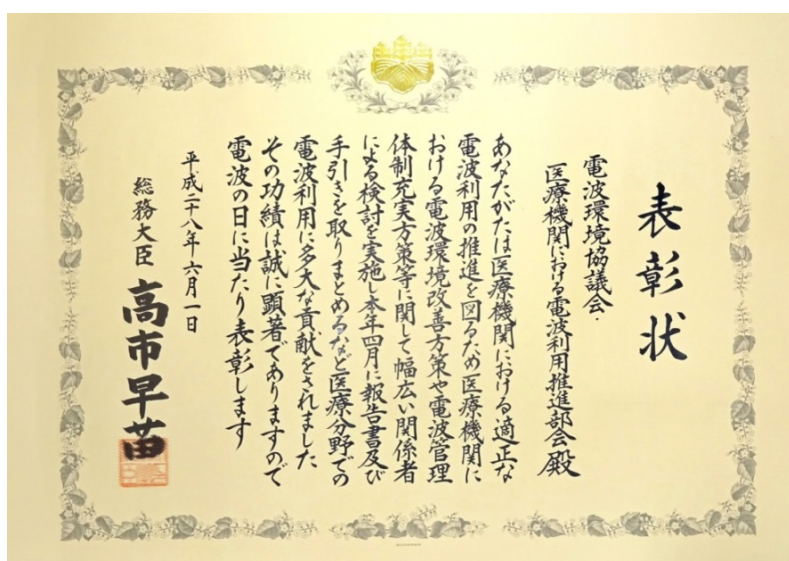 表彰状
電波環境協議会・
医療機関における電波利用推進部会殿
あなたがたは医療機関における適正な
電波利用の推進を図るため医療機関に
おける電波環境改善方策や電波管理
体制充実方策等に関して幅広い関係者
による検討を実施し本年四月に報告書及び
手引きを取りまとめるなど医療分野での
電波利用に多大な貢献をされました
その功績は誠に顕著でありますので
電波の日に当たり表彰します
平成二十八年六月一日
総務大臣 高市早苗